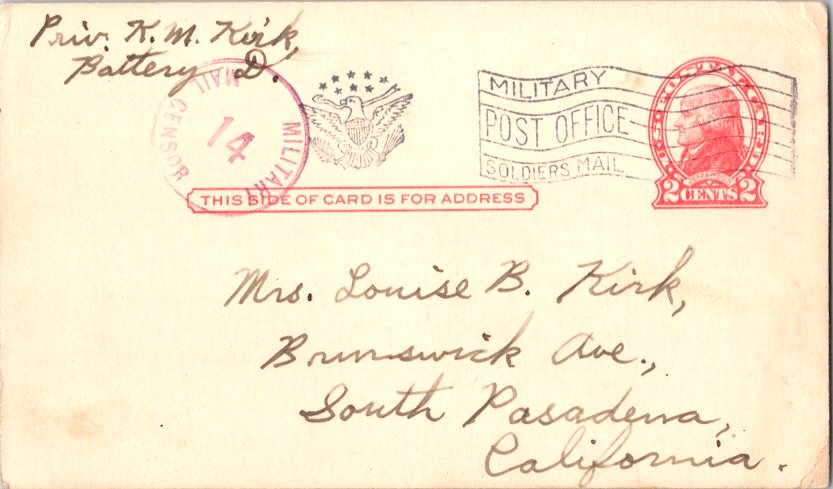 Priv. K. M. Kirk,
Battery D.
MILITARY
MAIL CENSOR
14
MILITARY
POST OFFICE
SOLDIERS MAIL
JEFFERSON
2 CENTS 2
THIS SIDE OF CARD IS FOR ADDRESS
Mrs. Louise B. Kirk,
Brunswick Ave.,
South Pasadena,
California.